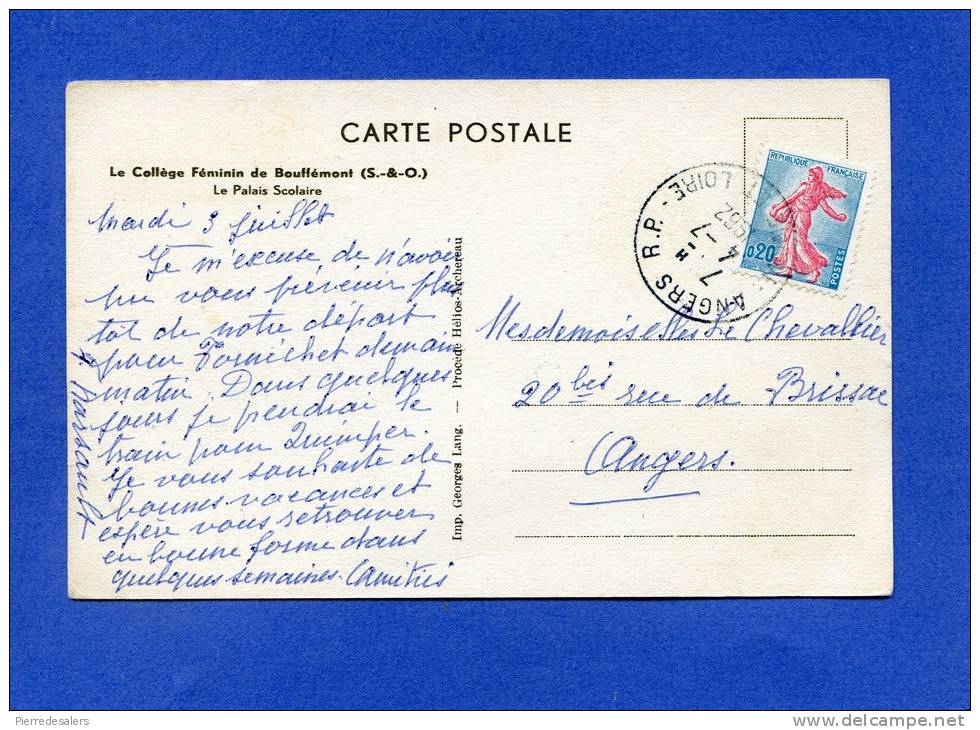 CARTE POSTALE
Le Collège Féminin de Bouffémont (S.-&-O.)
Le Palais Scolaire
Mardi 3 juillet
Je m'excuse de n'avoir
pu vous prévenir plus
tôt de notre départ
pour demain
matin. Dans quelques
jours je prendrai le
train pour Quimper.
Je vous souhaite de
bonnes vacances et
espère vous retrouver
en bonne forme dans
quelques semaines. Amitiés
Imp. Georges Lang. — Procédé Hélios-Archereau
REPUBLIQUE FRANÇAISE
0,20
POSTES
ANGERS R.P. - LOIRE
7 H
4 -7
1962
Mesdemoiselles Le Chevallier
20 bis rue de Brissac
Angers.
Pierredesalers
www.delcampe.net